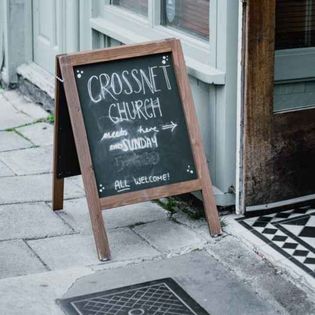 CROSSNET
CHURCH
meets here →
SUNDAY
ALL WELCOME